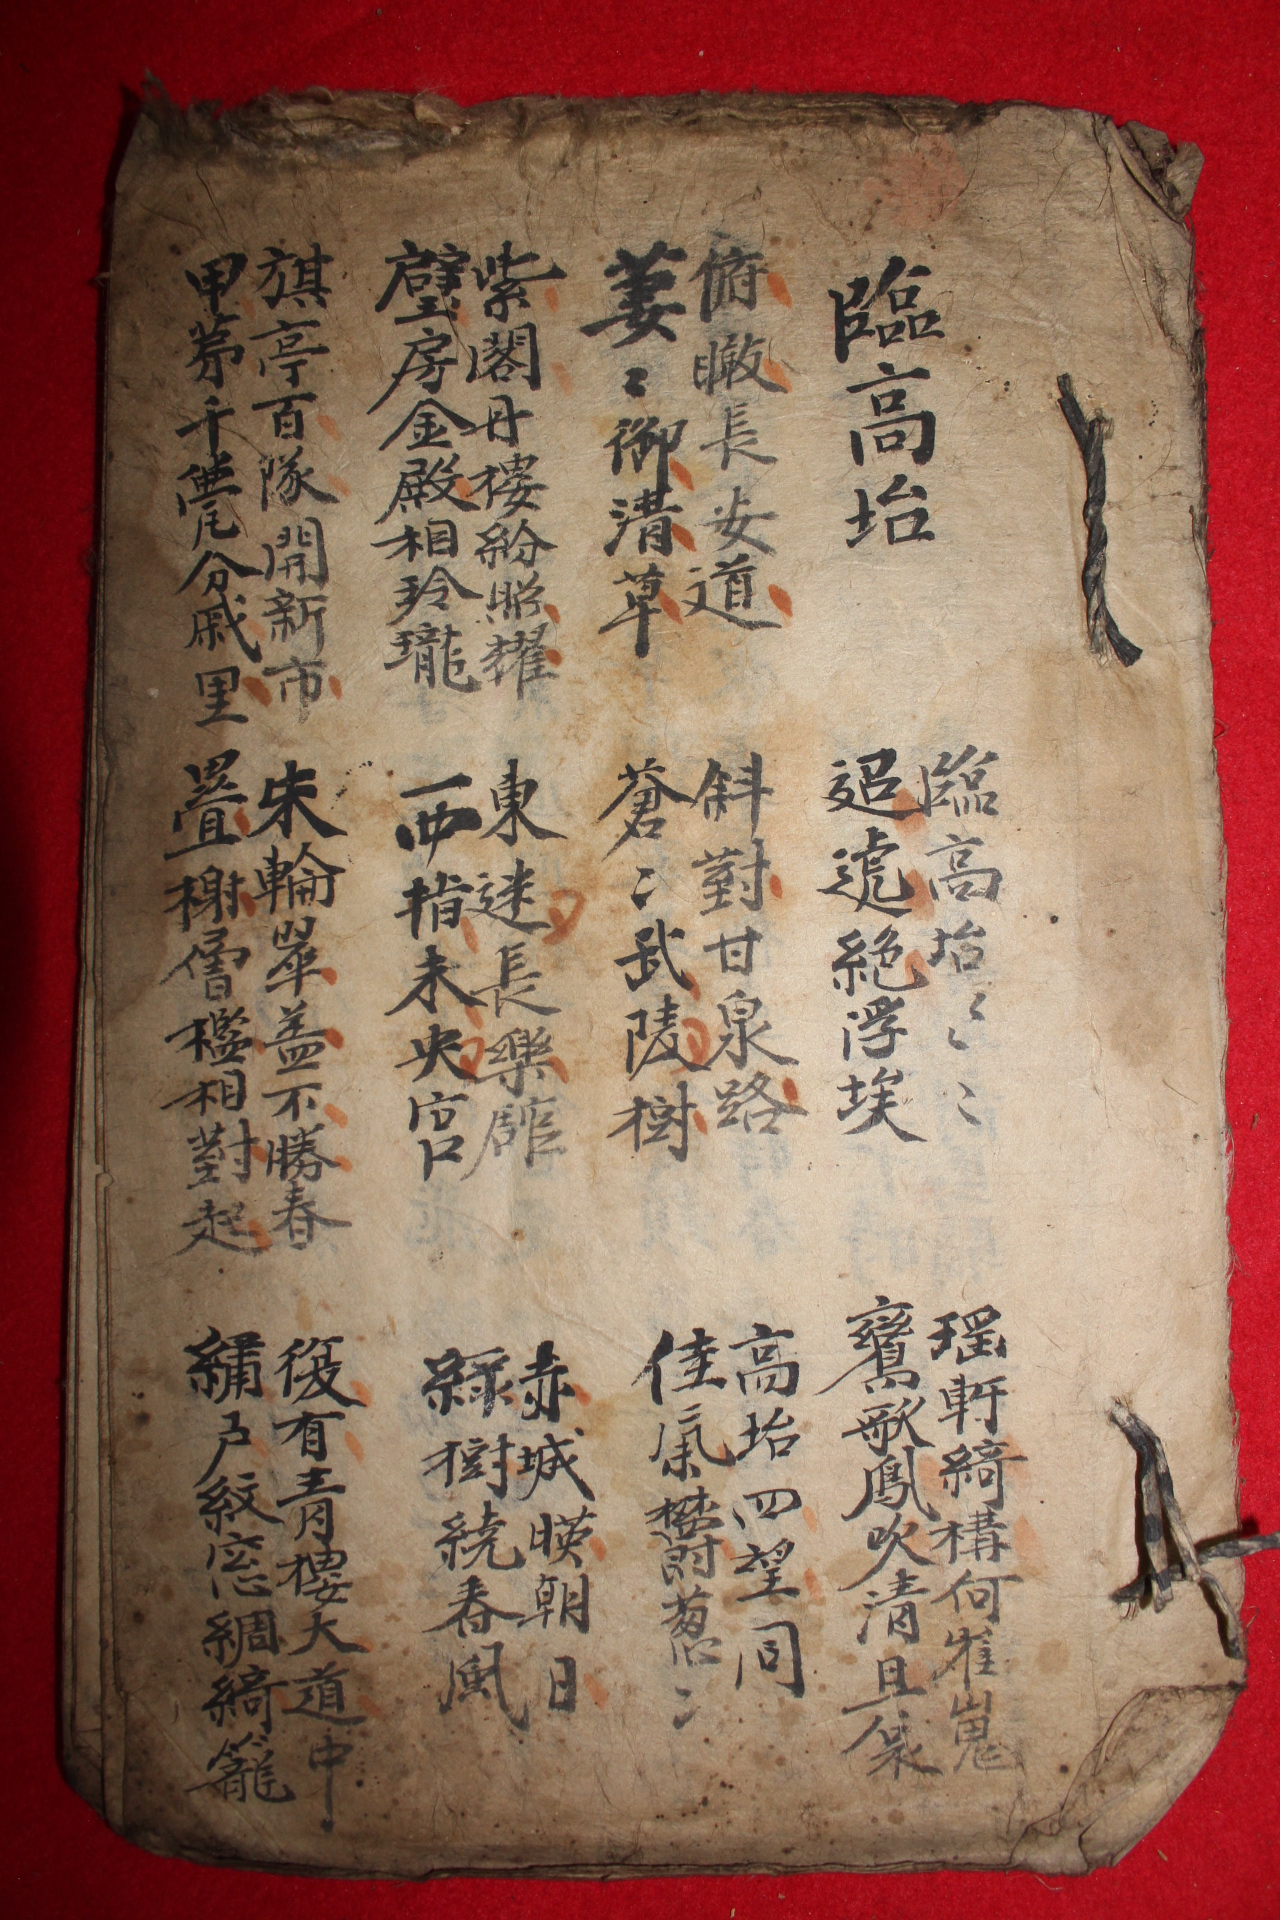 臨高坮
臨高坮〻〻〻
迢遞絶浮埃
瑤軒綺構何崔嵬
鸞歌鳳吹清且哀
俯瞰長安道
萋〻御溝草
斜對甘泉路
蒼〻武陵樹
高坮四望同
佳氣欝葱〻
紫閣丹樓紛照耀
璧房金殿相玲瓏
東迷長樂舘
西指未央宮
赤城暎朝日
綠樹繞春風
旗亭百隊開新市
甲苐千甍分戚里
朱輪翠盖不勝春
疊榭層檻相對起
復有青樓大道中
繡戶紋窓綢綺籠